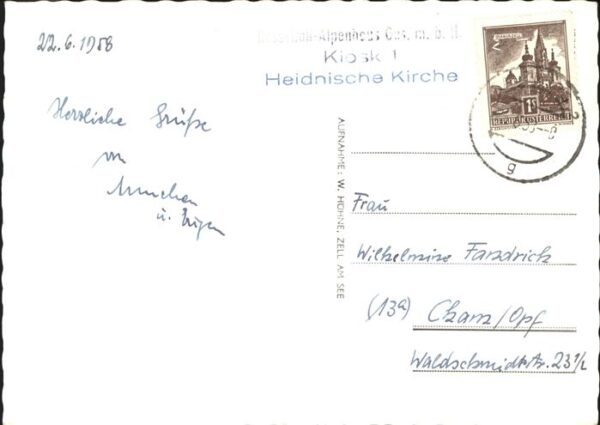 22.6.1958
-Alpenhaus Ges. m. b. H.
Kiosk 1
Heidnische Kirche
MARIAZELL
1S
REPUBLIK ÖSTERREICH
g
Herzliche Grüße
von
u.
AUFNAHME: W. HÖHNE, ZELL AM SEE
Frau
Wilhelmine Fandrich
(13a) Cham/Opf
Waldschmidtstr. 23 1/2